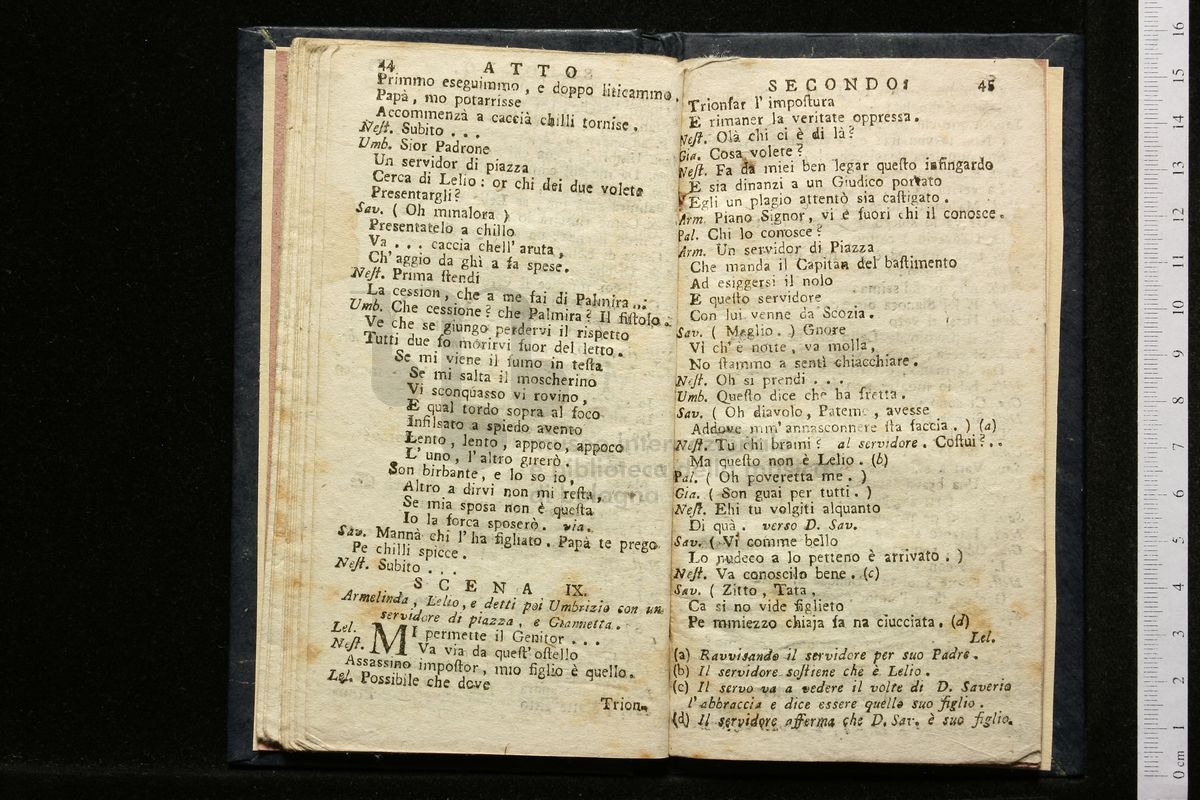 44 ATTO
Primmo eseguimmo, e doppo liticammo.
Papà, mo potarrisse
Accommenzà a caccià chilli tornise.
Nest. Subito...
Umb. Sior Padrone
Un servidor di piazza
Cerca di Lelio: or chi dei due volete
Presentargli?
Sav. (Oh mmalora)
Presentatelo a chillo
Va... caccia chell' aruta,
Ch' aggio da ghì a fa spese.
Nest. Prima stendi
La cession, che a me fai di Palmira...
Umb. Che cessione? che Palmira? Il fistolo.
Ve che se giungo perdervi il rispetto
Tutti due fo morirvi fuor del letto.
Se mi viene il fumo in testa
Se mi salta il moscherino
Vi sconquasso vi rovino,
E qual tordo sopra al foco
Infilsato a spiedo avento
Lento, lento, appoco, appoco
L' uno, l' altro girerò.
Son birbante, e lo so io,
Altro a dirvi non mi resta,
Se mia sposa non è questa
Io la forca sposerò. via.
Sav. Mannà chi l' ha figliato. Papà te prego
Pe chilli spicce.
Nest. Subito...
SCENA IX.
Armelinda, Lelio, e detti poi Umbrizio con un
servidore di piazza, e Giannetta.
Lel. MI permette il Genitor...
Nest. Va via da quest' ostello
Assassino impostor, mio figlio è quello.
Lel. Possibile che dove
Trion-
SECONDO. 45
Trionfar l' impostura
E rimaner la veritate oppressa.
Nest. Olà chi ci è di là?
Gia. Cosa volete?
Nest. Fa da miei ben legar questo infingardo
E sia dinanzi a un Giudico portato
Egli un plagio attentò sia castigato.
Arm. Piano Signor, vi è fuori chi il conosce.
Pal. Chi lo conosce?
Arm. Un servidor di Piazza
Che manda il Capitan del bastimento
Ad esiggersi il nolo
E questo servidore
Con lui venne da Scozia.
Sav. (Meglio.) Gnore
Vì ch' è notte, va molla,
No stammo a sentì chiacchiare.
Nest. Oh si prendi...
Umb. Questo dice che ha fretta.
Sav. (Oh diavolo, Pateme, avesse
Addove mm' annasconnere sta faccia.) (a)
Nest. Tu chi brami? al servidore. Costui?..
Ma questo non è Lelio. (b)
Pal. (Oh poveretta me.)
Gia. (Son guai per tutti.)
Nest. Ehi tu volgiti alquanto
Di quà. verso D. Sav.
Sav. (Vì comme bello
Lo nudeco a lo petteno è arrivato.)
Nest. Va conoscilo bene. (c)
Sav. (Zitto, Tata,
Ca si no vide figlieto
Pe mmiezzo chiaja fa na ciucciata. (d)
Lel.
(a) Ravvisando il servidore per suo Padre.
(b) Il servidore sostiene che è Lelio.
(c) Il servo va a vedere il volte di D. Saverio
l' abbraccia e dice essere quello suo figlio.
(d) Il servidore afferma che D. Sav. è suo figlio.